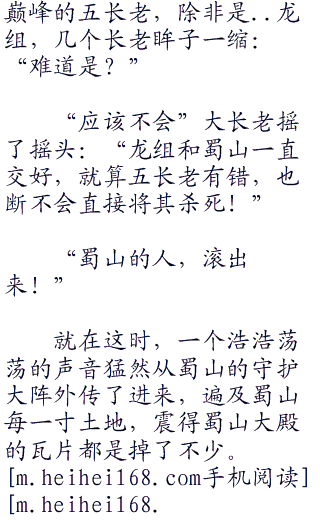 巅峰的五长老，除非是..龙
组，几个长老眸子一缩：
“难道是？”
“应该不会”大长老摇
了摇头：“龙组和蜀山一直
交好，就算五长老有错，也
断不会直接将其杀死！”
“蜀山的人，滚出
来！”
就在这时，一个浩浩荡
荡的声音猛然从蜀山的守护
大阵外传了进来，遍及蜀山
每一寸土地，震得蜀山大殿
的瓦片都是掉了不少。
[m.heihei168.com手机阅读]
[m.heihei168.